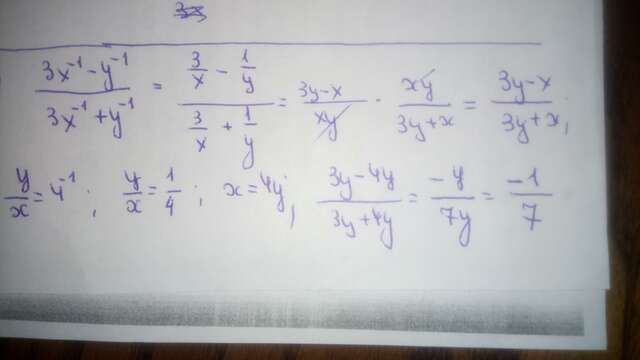 (3x⁻¹ - y⁻¹)/(3x⁻¹ + y⁻¹) = (3/x - 1/y)/(3/x + 1/y) = (3y-x)/(xy) · (xy)/(3y+x) = (3y-x)/(3y+x);
y/x = 4⁻¹; y/x = 1/4; x = 4y; (3y-4y)/(3y+4y) = (-y)/(7y) = (-1)/7